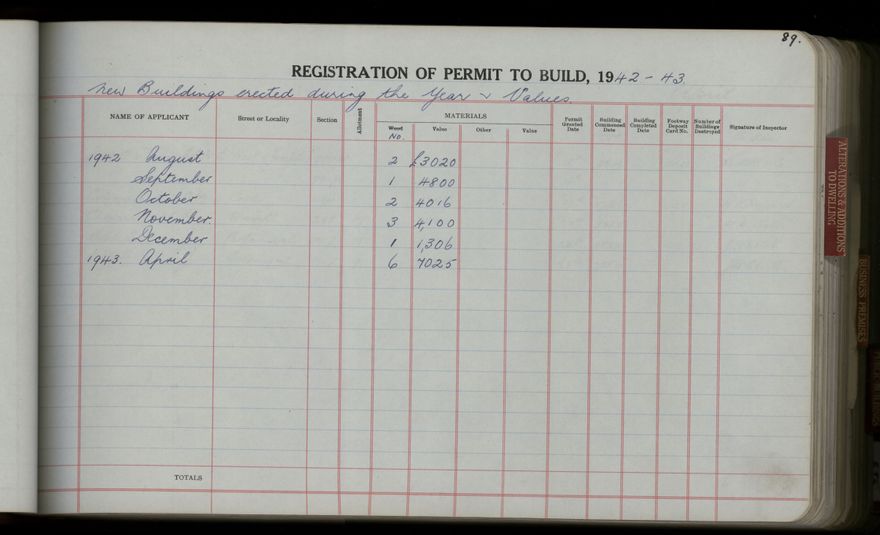 89.
REGISTRATION OF PERMIT TO BUILD, 1942-43.
New Buildings erected during the Year & Values.
NAME OF APPLICANT Street or Locality Section Allotment MATERIALS Permit Granted Date Building Commenced Date Building Completed Date Footway Deposit Card No. Number of Buildings Destroyed Signature of Inspector
Wood No. Value Other Value
1942 August 2 £3020
September 1 4800
October 2 4016
November. 3 4,100
December 1 1,306
1943. April 6 7025
TOTALS
ALTERATIONS & ADDITIONS
TO DWELLING
BUSINESS PREMISES